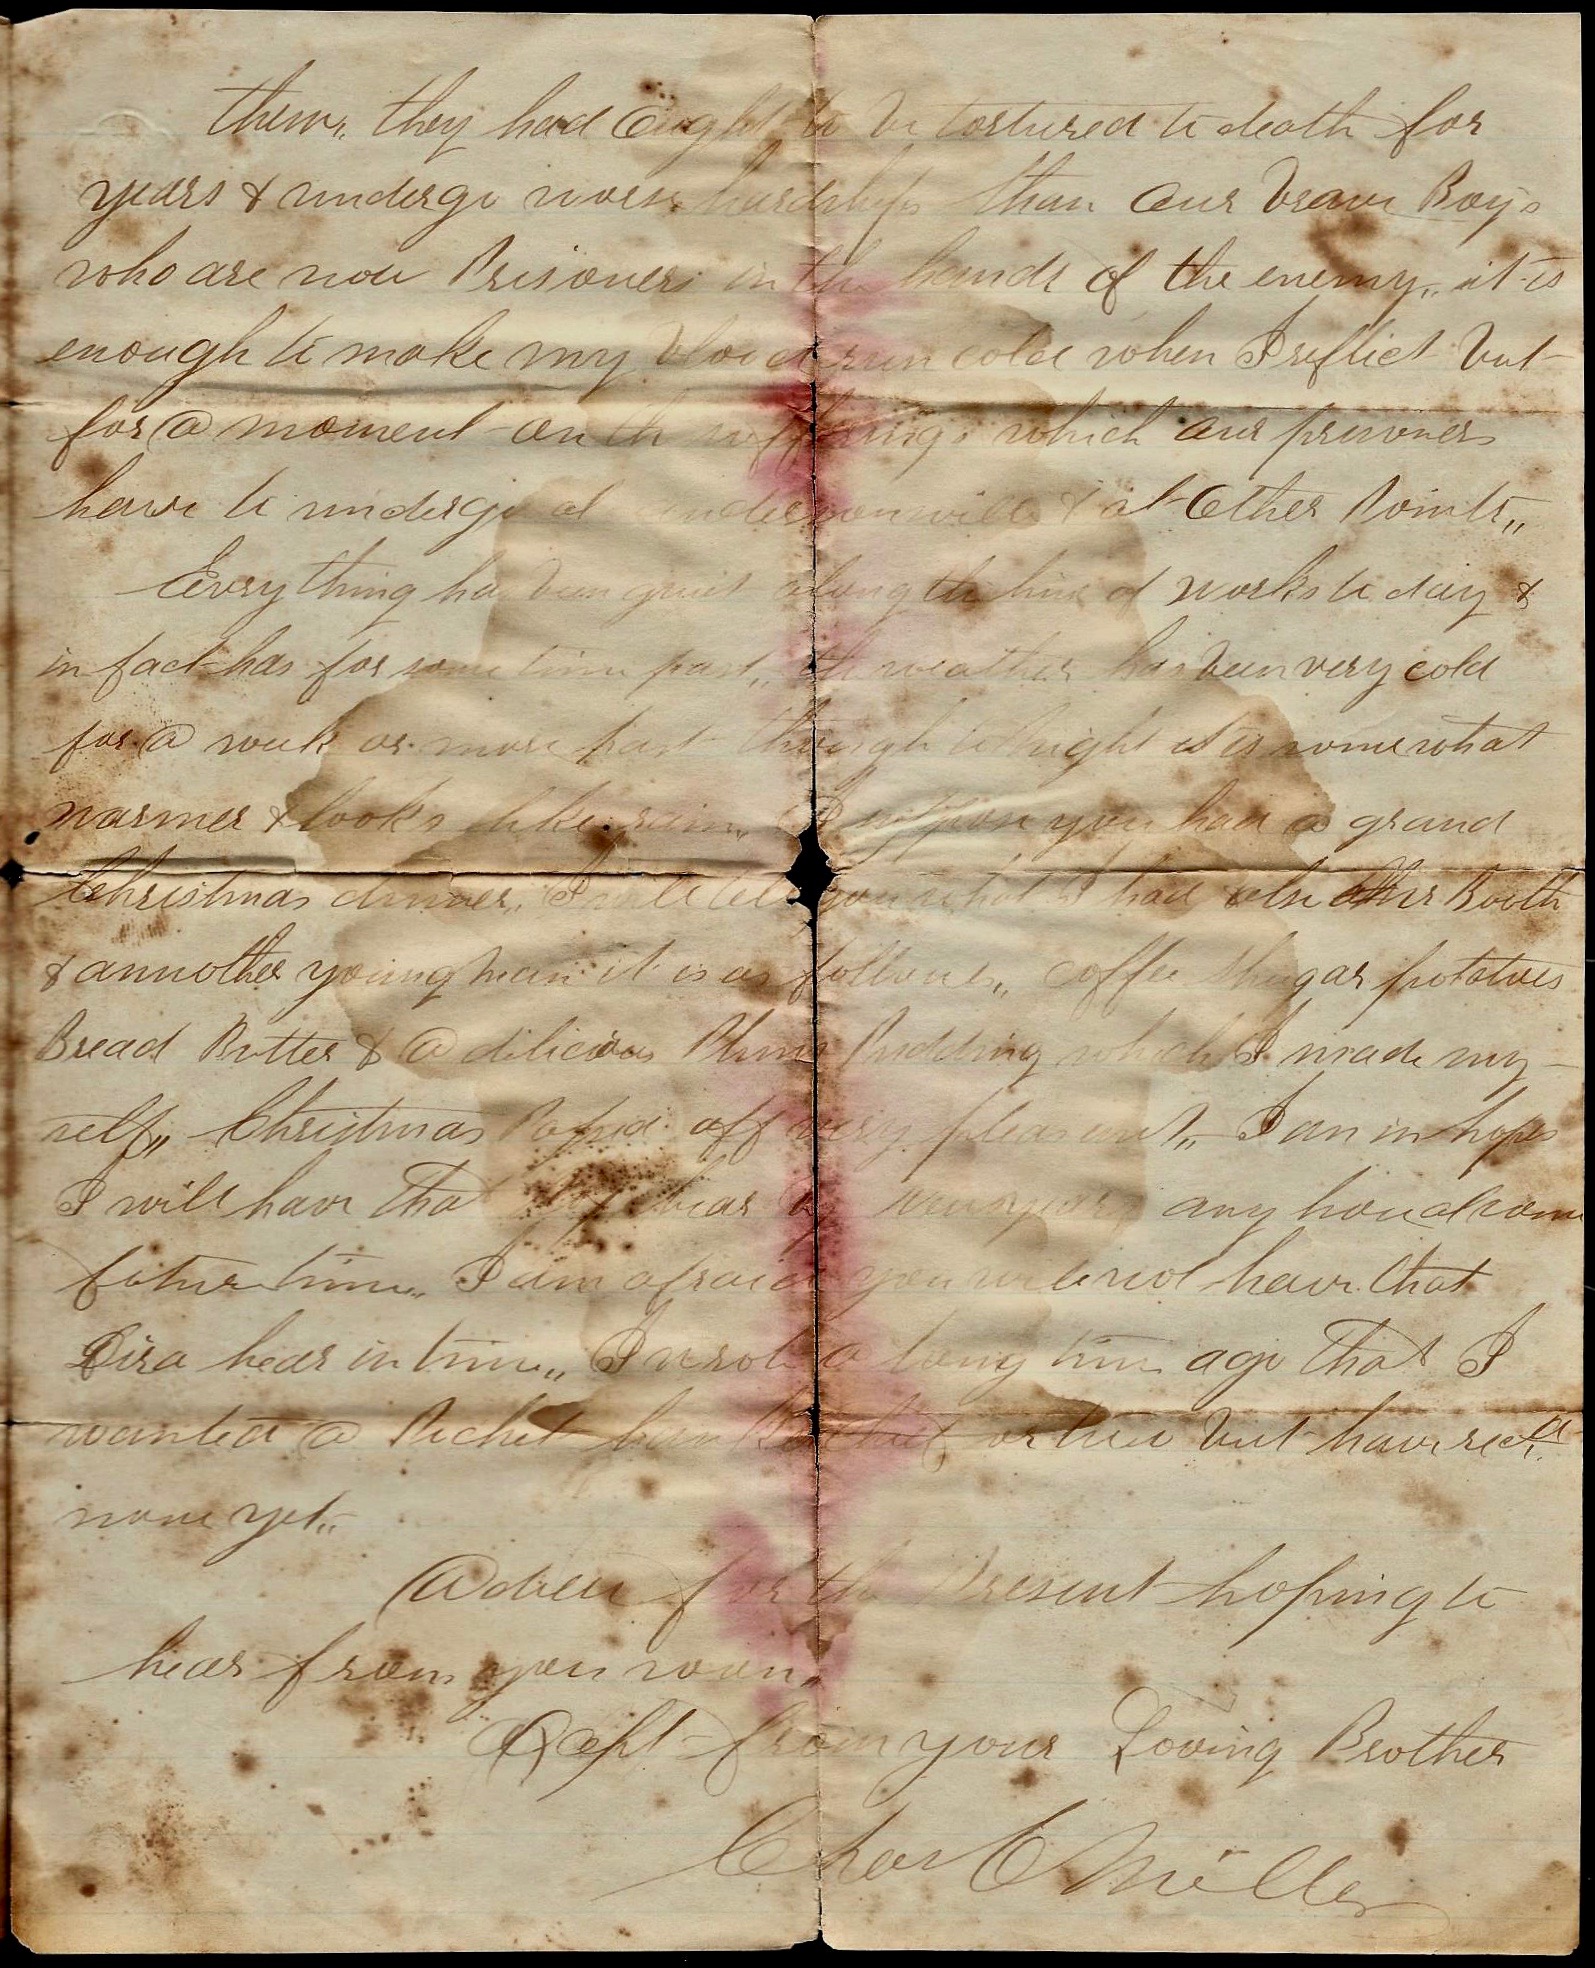 them,, they had ought to be tortured to death for
years & undergo worse hardships than our brave Boys
who are now Prisoners in the hands of the enemy,, it is
enough to make my blood run cold when I reflect but
for a moment on the sufferings which our prisoners
have to undergo at Andersonville & at Other Points,,
Everything has been quiet along the line of works to day &
in fact has for some time past,, the weather has been very cold
for a week or more past though to night it is somewhat
warmer & looks like rain,, I suppose you had a grand
Christmas dinner,, I will tell you what I had also Booth
& annother young man it is as follows,, coffee Shugar potatoes
Bread Butter & a dilicious Plum Pudding which I made my-
self,, Christmas Passed off very pleasant,, I am in hopes
I will have that by newyears any how at some
future time,, I am afraid you will not have that
hear in time,, I wrote a long time ago that I
wanted a Pocket or two but have recd.
none yet,,
Adieu for the Present hoping to
hear from you soon,,
from your Loving Brother
Chas C Miller